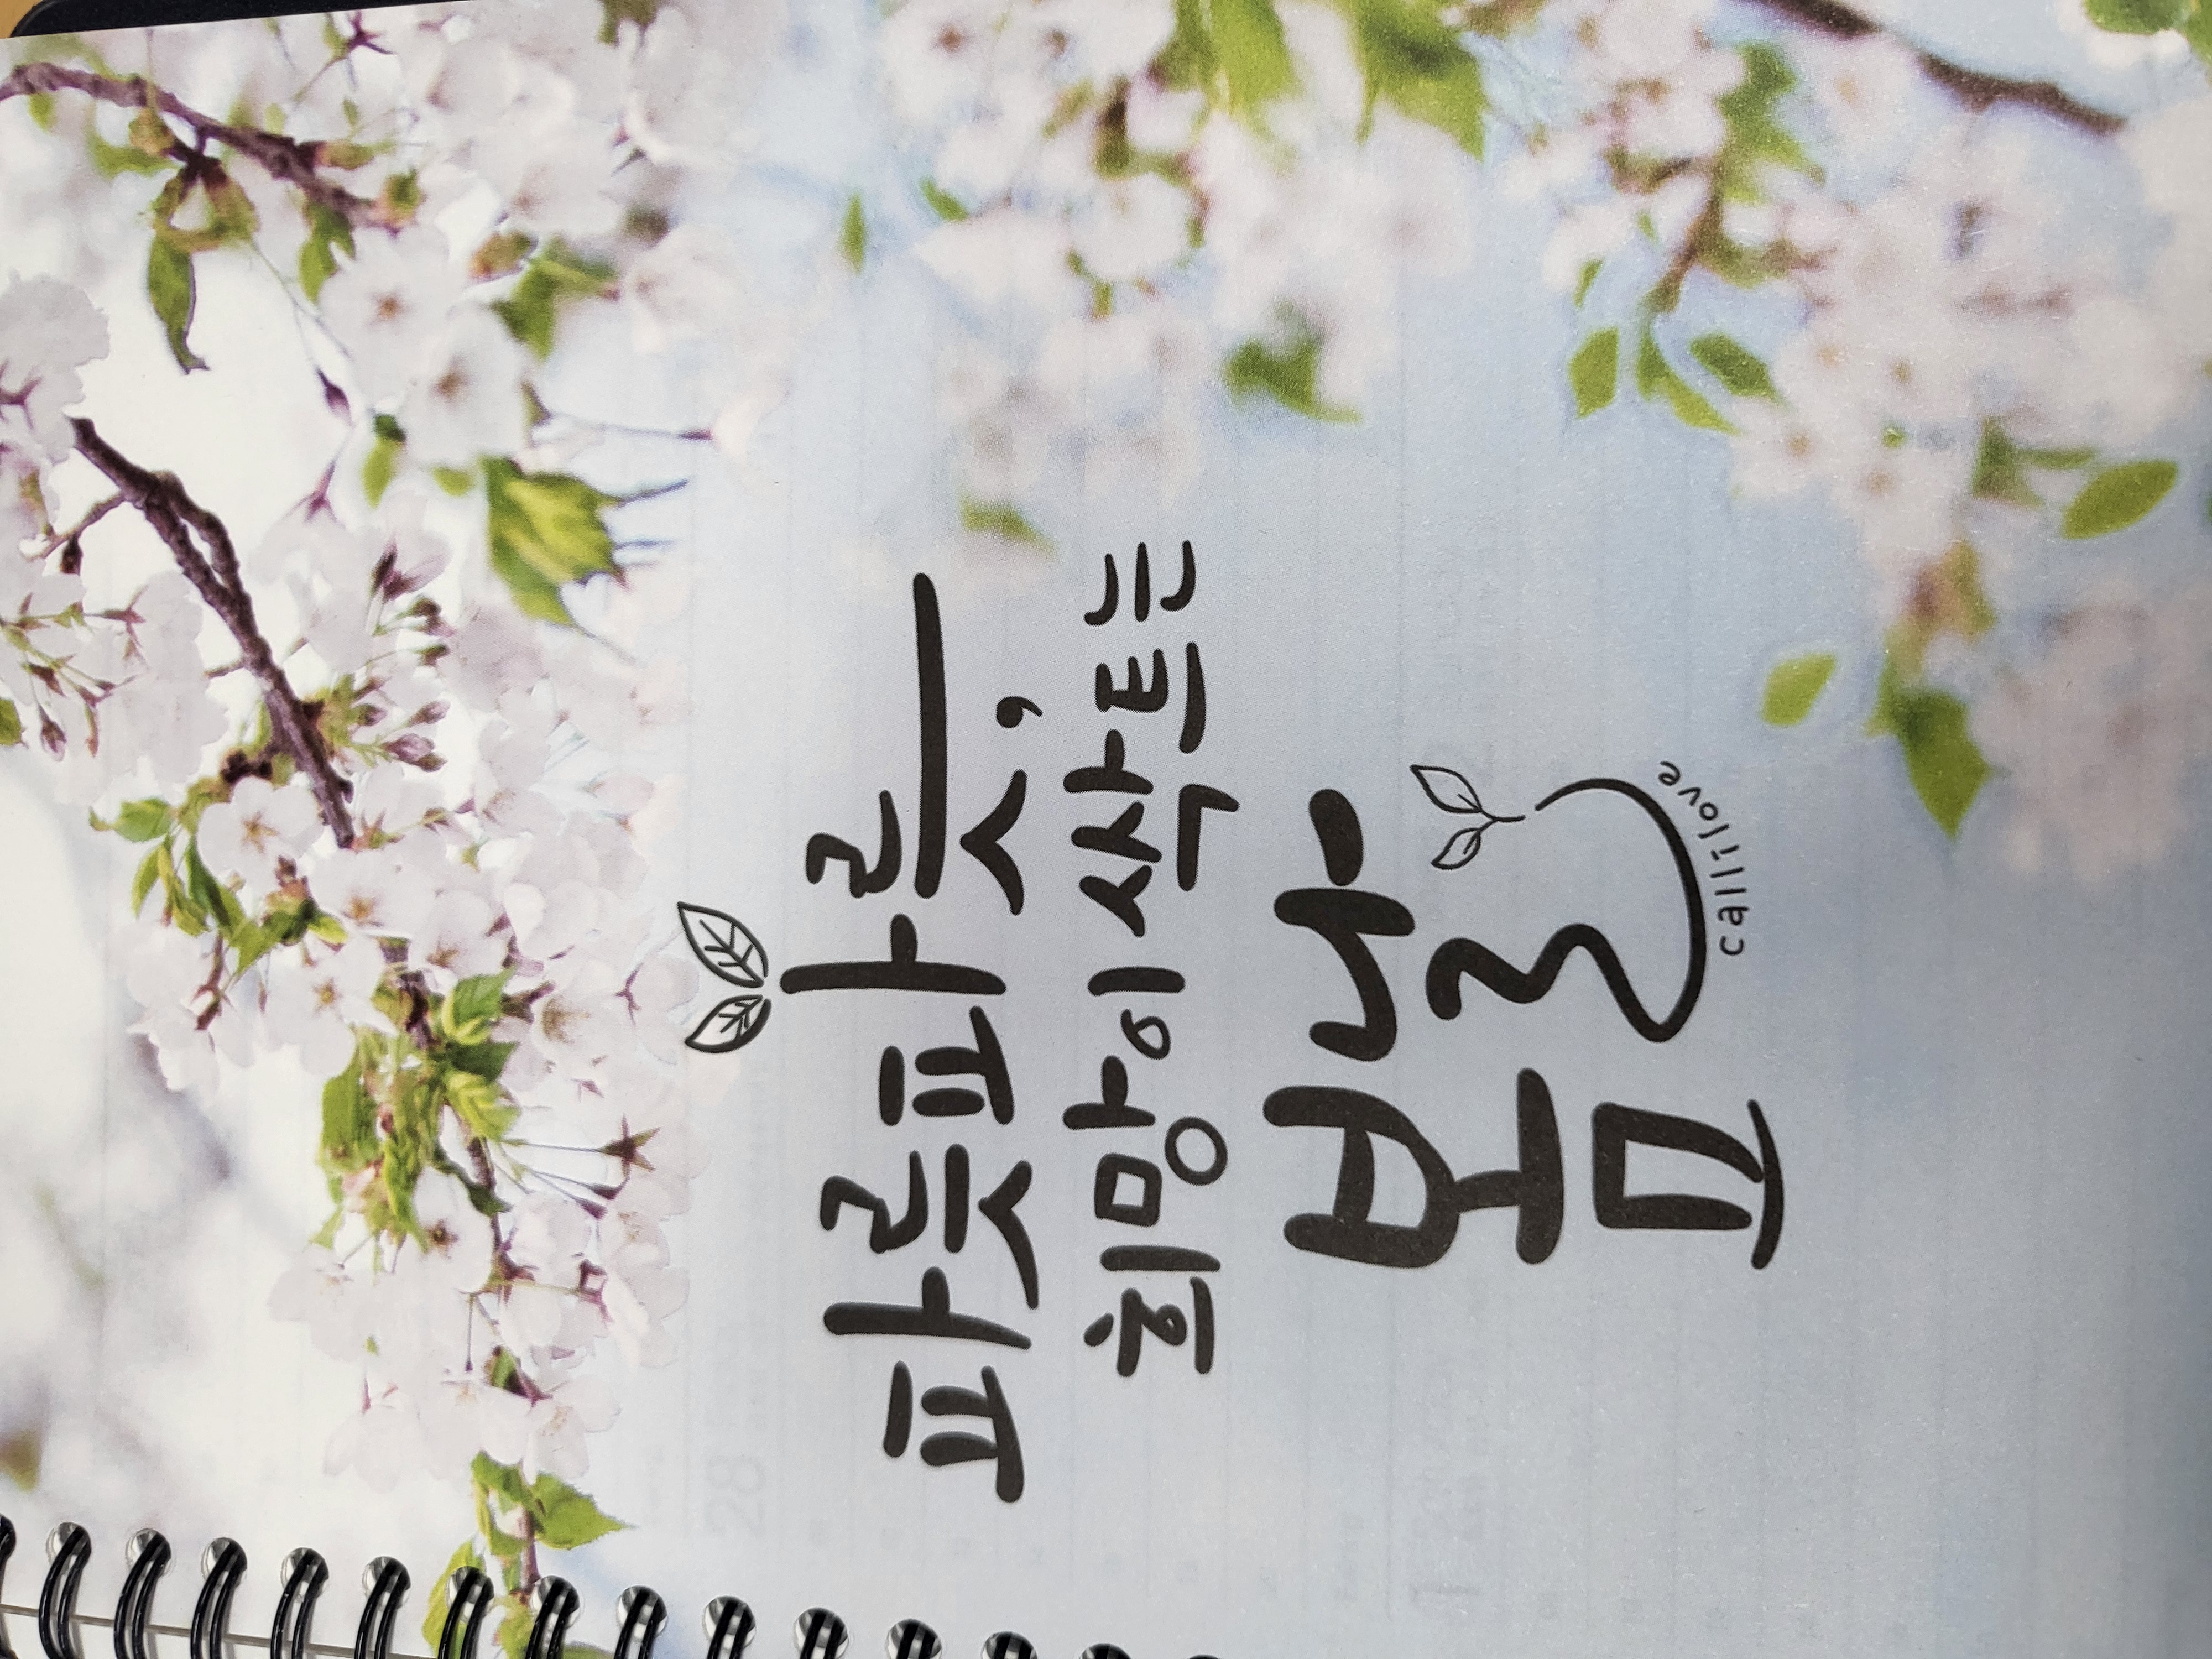 파릇파릇,
희망이 싹트는
봄날
callilove
28